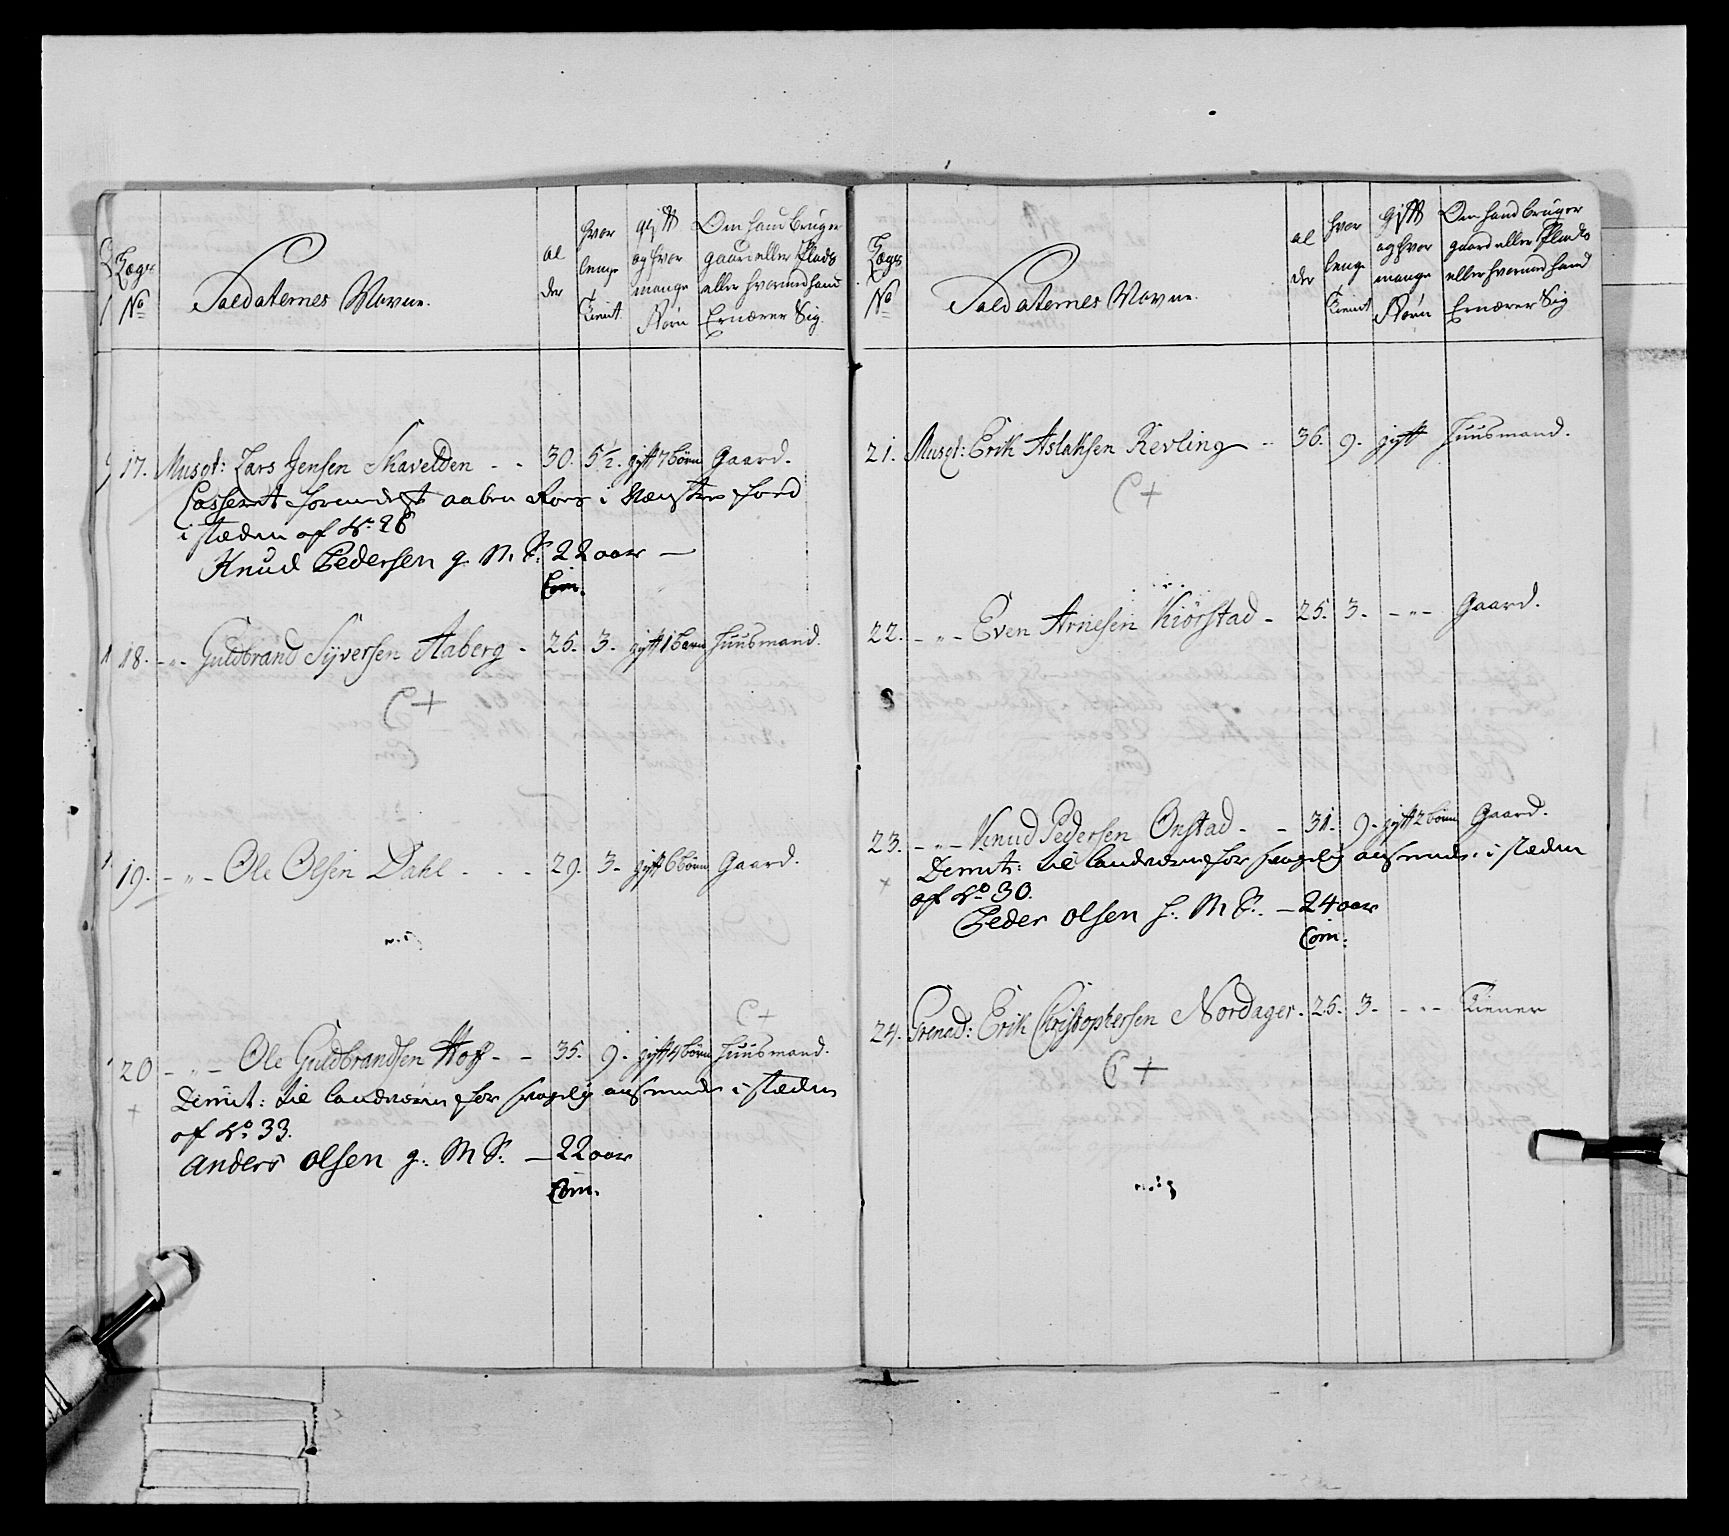 Lægs
No
Soldaternes Navne.
al
der
hvor
lenge
tient
gift
og hvor
mange
Børn
Om hand bruger
gaard eller Plads
eller hvormed hand
Ernærer Sig.
17. Musqt: Lars Jensen Skavelden - - 30. 5½. gift 7 børn Gaard.
Casseret formedelst aaben Aare i Venstre
i stæden af No 28
Knud Pedersen g. M. S. 22 aar —
Com:
18. - " - Guldbrand Syversen Aaberg - 25. 3. gift 1 barn Huusmand.
19. - " - Ole Olsen Dahl - - - 29. 3. gift 6 børn Gaard.
20 - " - Ole Guldbrandsen Hoff - - 35. 9. gift 4 børn Huusmand.
Dimit: til landværn for svagelig i stæden
af No 33.
Anders Olsen g: M S: — 22 aar
Com.
Lægs
No
Soldaternes Navne.
al
der
hvor
lenge
tient
gift
og hvor
mange
Børn
Om hand bruger
gaard eller Plads
eller hvormed hand
Ernærer Sig
21. Musqt: Erik Aslaksen Kevling - - 36. 9. gift Huusmand.
22. - " - Even Arnesen Kiørstad - 25. 3. - " - Gaard.
23. - " - Knud Pedersen Onstad - - 31. 9. gift 2 børn Gaard.
Dimit: til landværn for svagelig i stæden
af No 30.
Peder Olsen S: M S: — 24 aar
Com:
24. Grenad: Erik Christophersen Nordager. 25. 3. - " - Tiener